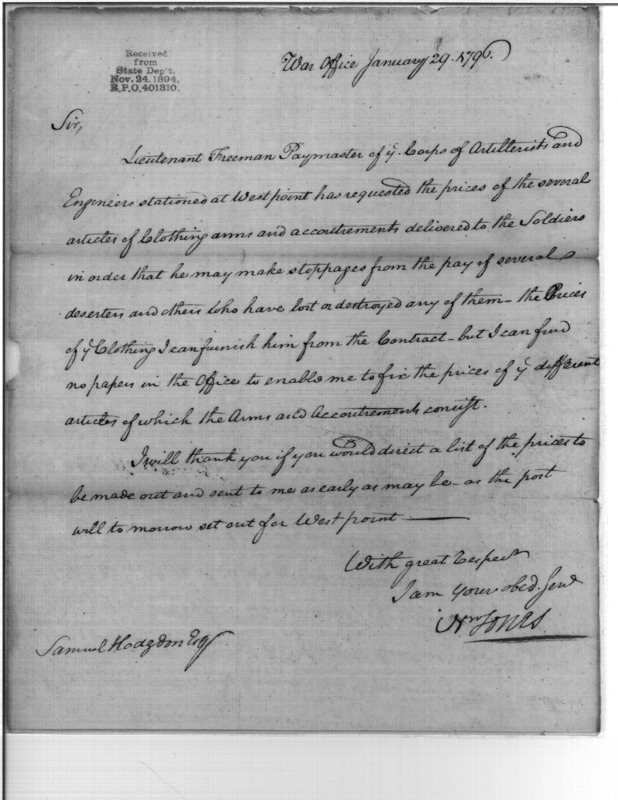 Received
from
State Dep't.
Nov. 24. 1894.
R.P.O. 401310.
War Office January 29. 1796.
Sir,
Lieutenant Freeman Paymaster of ye. Corps of Artillerists and
Engineers stationed at West point has requested the prices of the several
articles of Clothing arms and accoutrements delivered to the Soldiers
in order that he may make stoppages from the pay of several
deserters and others who have lost or destroyed any of them – the Prices
of ye Clothing I can furnish him from the Contract – but I can find
no papers in the Office to enable me to fix the prices of ye different
articles of which the Arms and Accoutrements consist.
I will thank you if you would direct a list of the prices to
be made out and sent to me as early as may be – as the post
will to morrow set out for West point —
With great respect
I am Your obed. Serv.
Wm Jones
Samuel Hodgdon Esqr